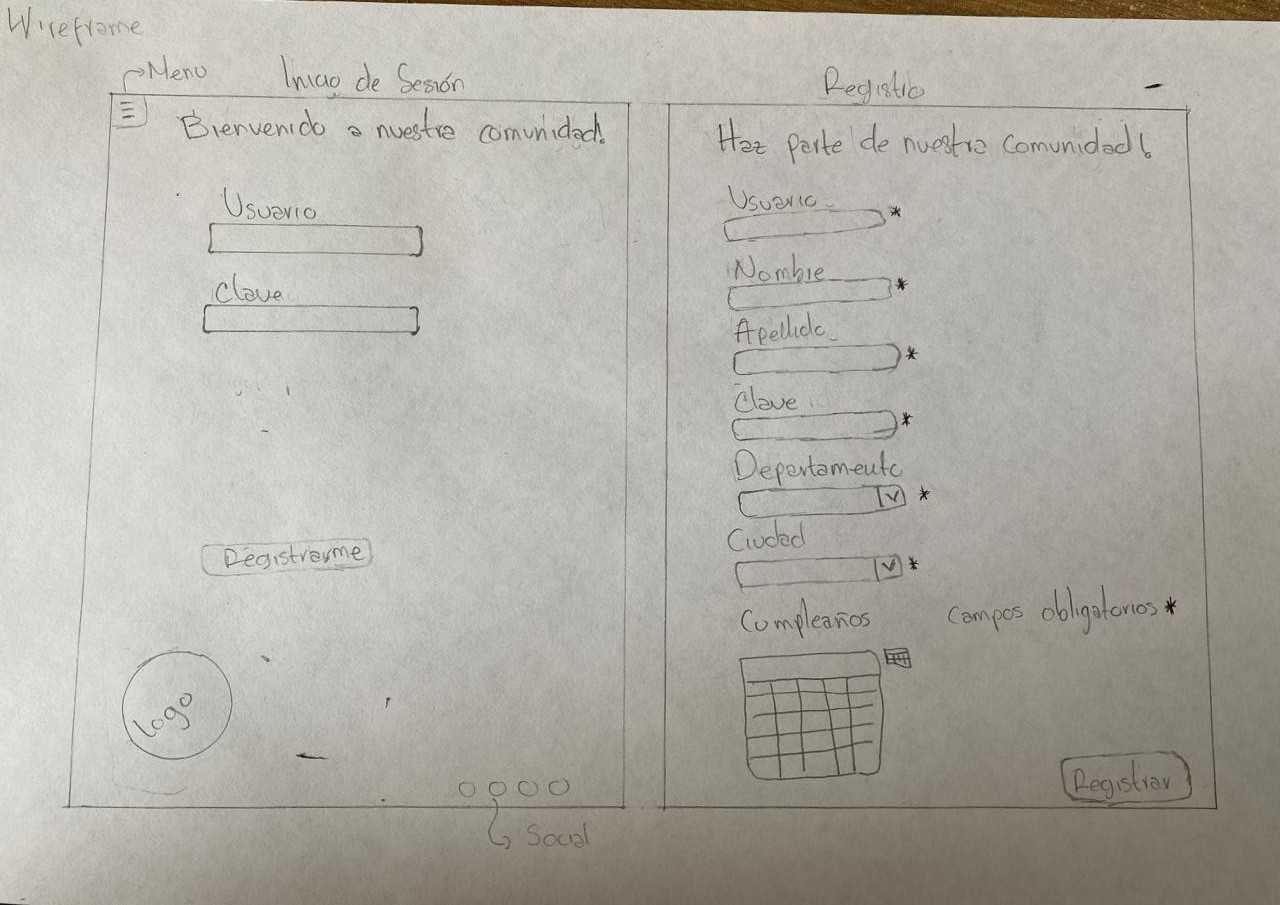 Wireframe
Menu
Inicio de Sesión
Bienvenido a nuestra comunidad!
Usuario
Clave
Registrarme
Logo
Social
Registro
Haz parte de nuestra comunidad!
Usuario
*
Nombre
*
Apellido
*
Clave
*
Departamento
*
Ciudad
*
Cumpleaños
Campos obligatorios *
Registrar